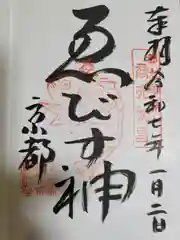 奉拝 令和七年一月二日
ゑびす神
京都